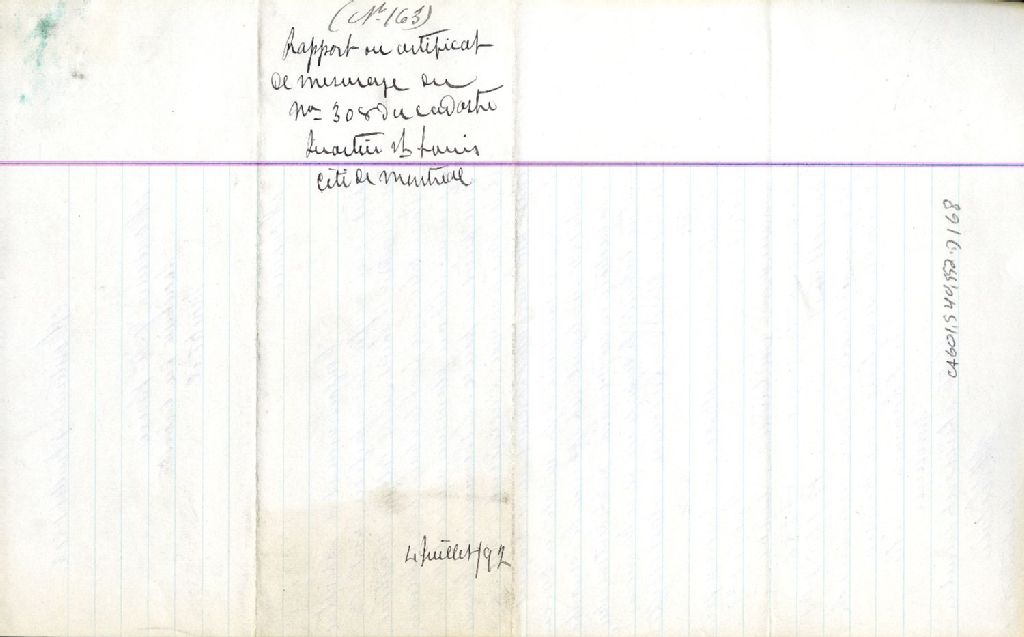 (No 163)
Rapport ou certificat
de mesurage du
No 308 du cadastre
Quartier St Louis
Cité de Montréal
4 Juillet/92